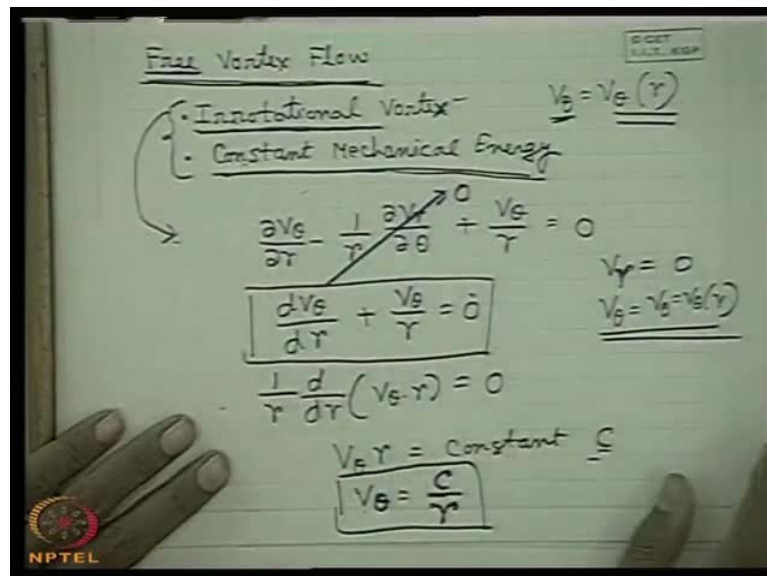 Free Vortex Flow
© CET
I.I.T. KGP
• Irrotational Vortex
V_θ = V_θ (r)
• Constant Mechanical Energy
∂V_θ/∂r - 1/r ∂V_r/∂θ + V_θ/r = 0
0
V_r = 0
dV_θ/dr + V_θ/r = 0
V_θ = V_θ = V_θ(r)
1/r d/dr (V_θ·r) = 0
V_θ r = Constant C
V_θ = C/r
NPTEL